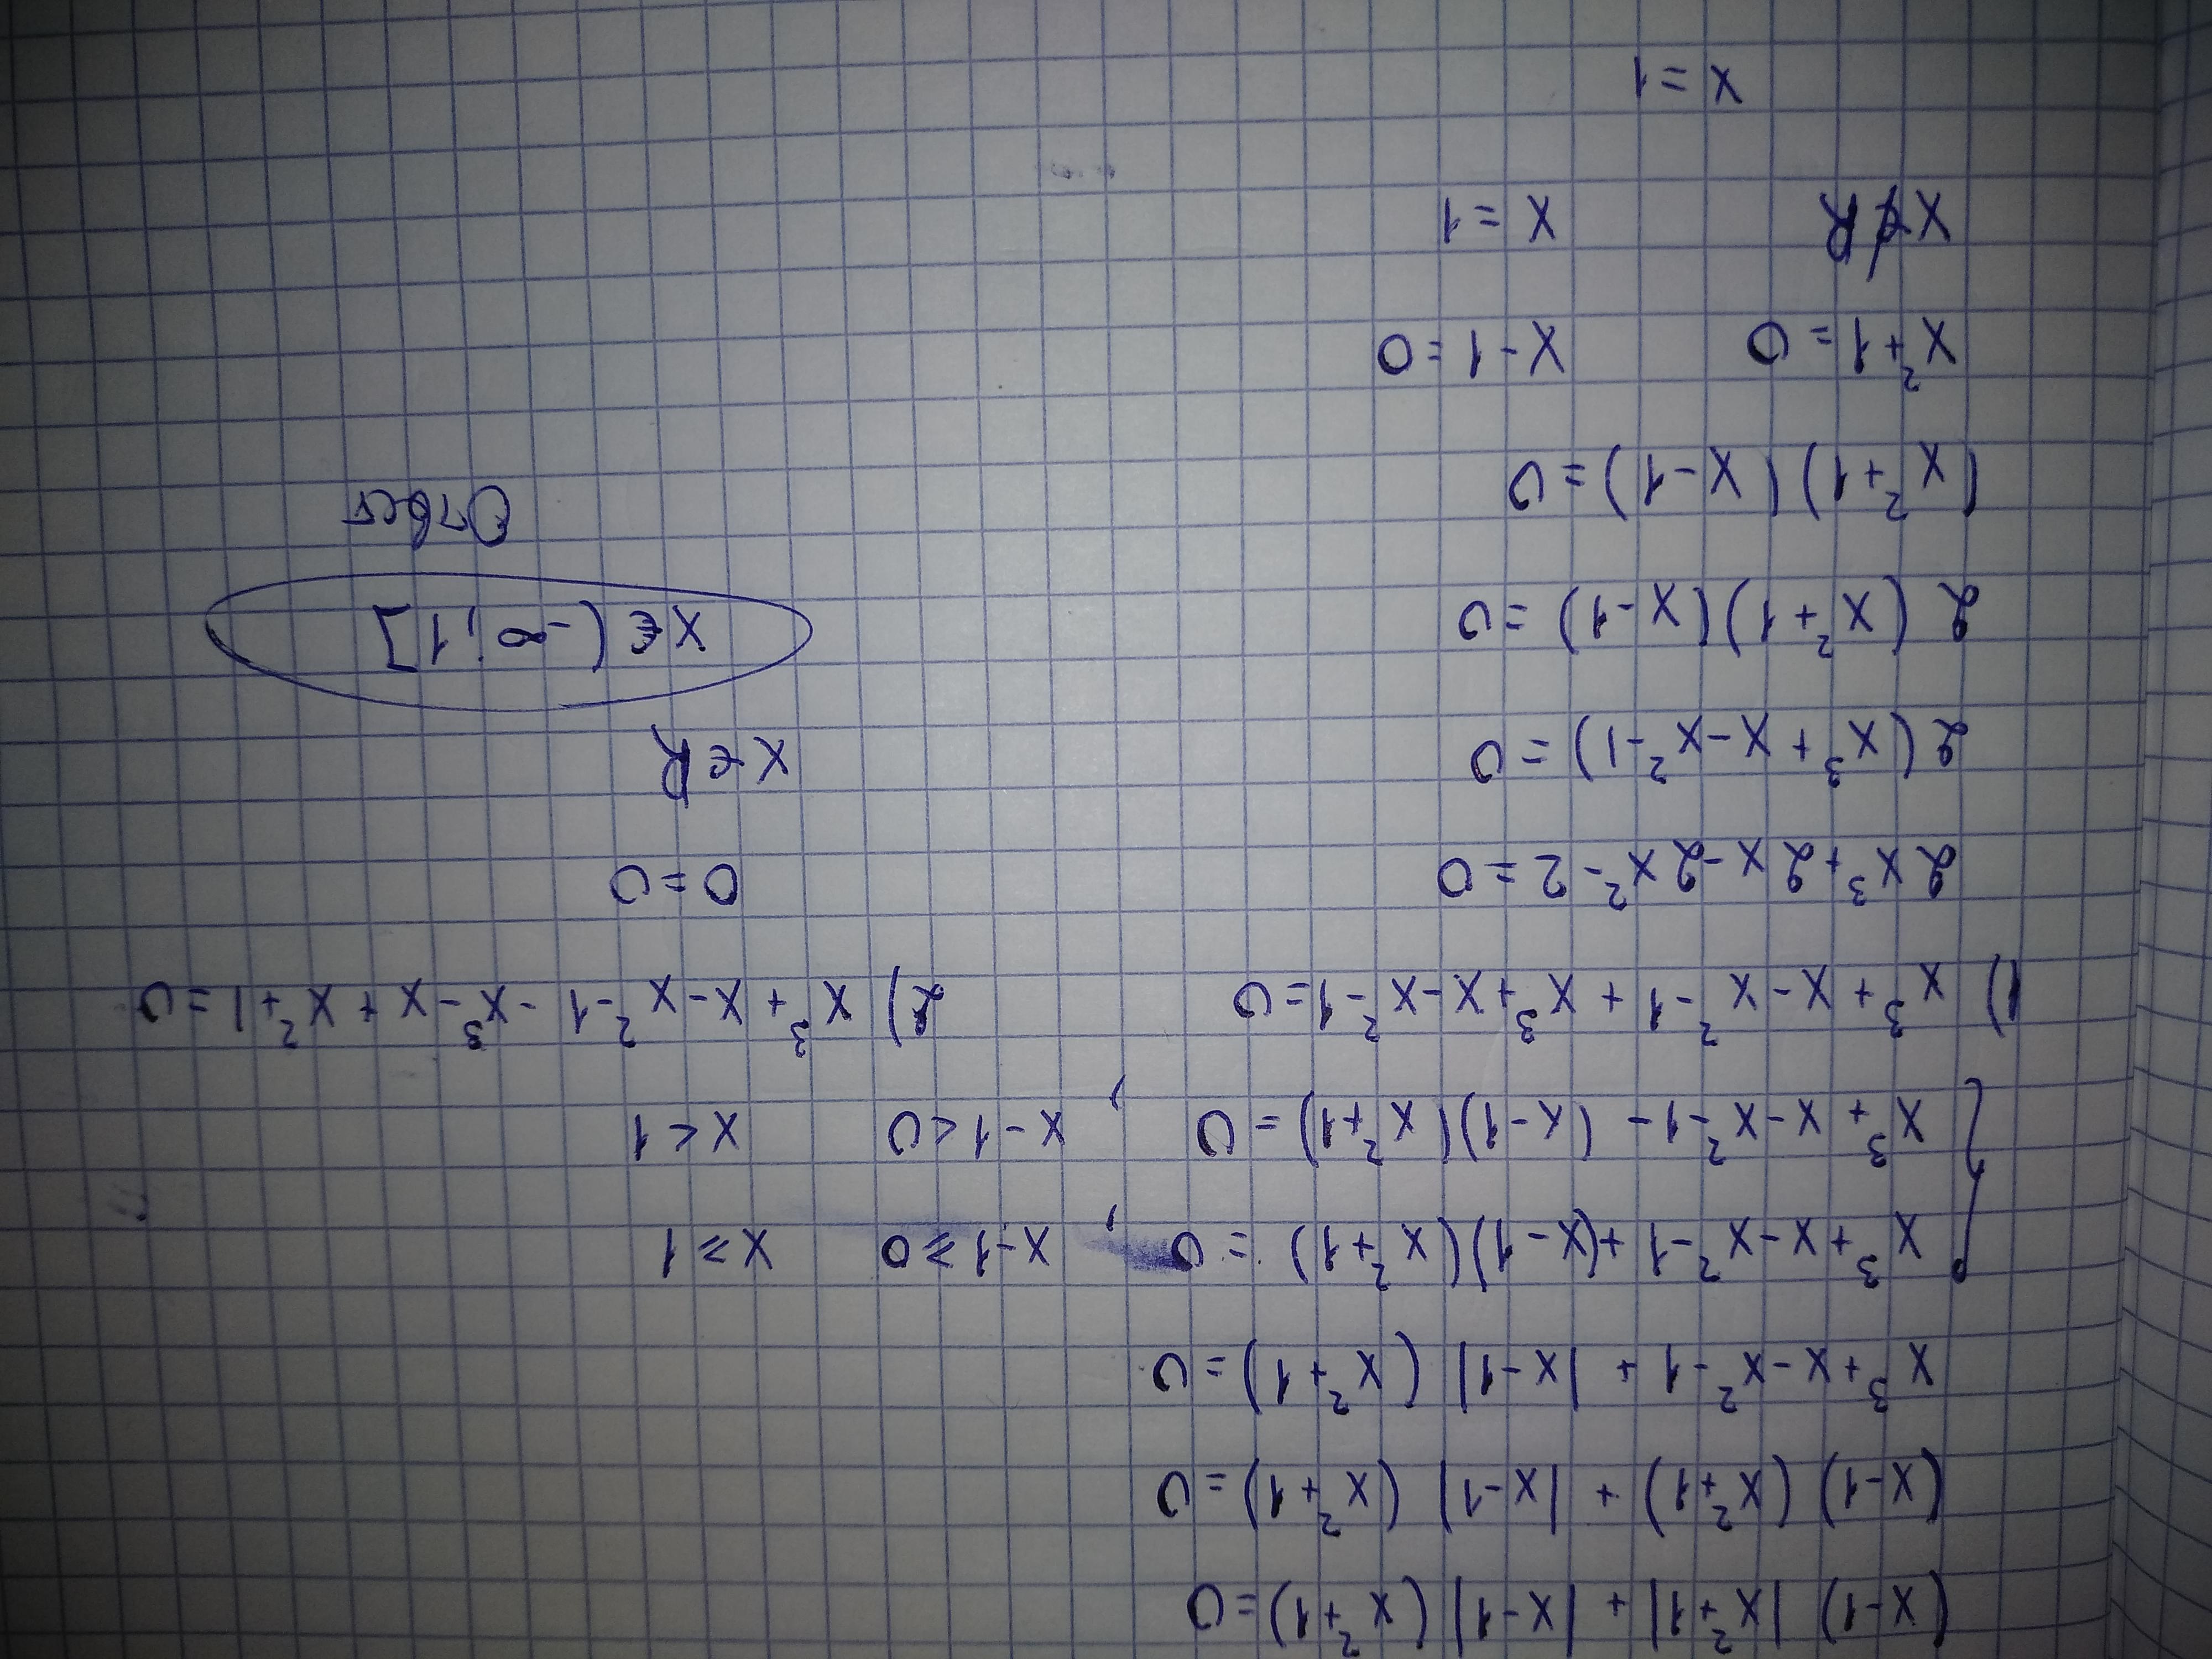 (x-1) |x²+1| + |x-1| (x²+1)=0
(x-1) (x²+1) + |x-1| (x²+1)=0
x³+x-x²-1 + |x-1| (x²+1)=0
x³+x-x²-1+(x-1)(x²+1) = 0, x-1⩾0 x⩾1
x³+x-x²-1-(x-1)(x²+1)=0, x-1<0 x<1
1) x³+x-x²-1+x³+x-x²-1=0
2x³+2x-2x²-2=0
2(x³+x-x²-1)=0
2(x²+1)(x-1)=0
(x²+1)(x-1)=0
x²+1=0 x-1=0
x∉R x=1
x=1
2) x³+x-x²-1-x³-x+x²+1=0
0=0
x∈R
x∈(-∞;1]
Ответ